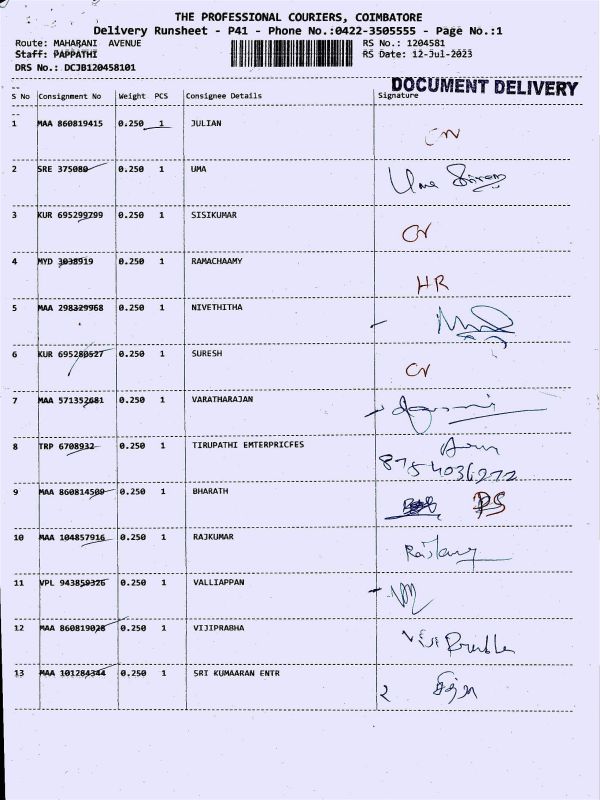 THE PROFESSIONAL COURIERS, COIMBATORE
Delivery Runsheet - P41 - Phone No.:0422-3505555 - Page No.:1
Route: MAHARANI AVENUE RS No.: 1204581
Staff: PAPPATHI RS Date: 12-Jul-2023
DRS No.: DCJB120458101
DOCUMENT DELIVERY
S No Consignment No Weight PCS Consignee Details Signature
1 MAA 860819415 0.250 1 JULIAN
2 SRE 375080 0.250 1 UMA
Uma
3 KUR 695299799 0.250 1 SISIKUMAR
4 MYD 3038919 0.250 1 RAMACHAAMY
HR
5 MAA 298329968 0.250 1 NIVETHITHA
6 KUR 695280527 0.250 1 SURESH
7 MAA 571352681 0.250 1 VARATHARAJAN
8 TRP 6708932 0.250 1 TIRUPATHI EMTERPRICFES
9 MAA 860814509 0.250 1 BHARATH
10 MAA 104857916 0.250 1 RAJKUMAR
11 VPL 943859326 0.250 1 VALLIAPPAN
12 MAA 860819028 0.250 1 VIJIPRABHA
13 MAA 101284344 0.250 1 SRI KUMAARAN ENTR